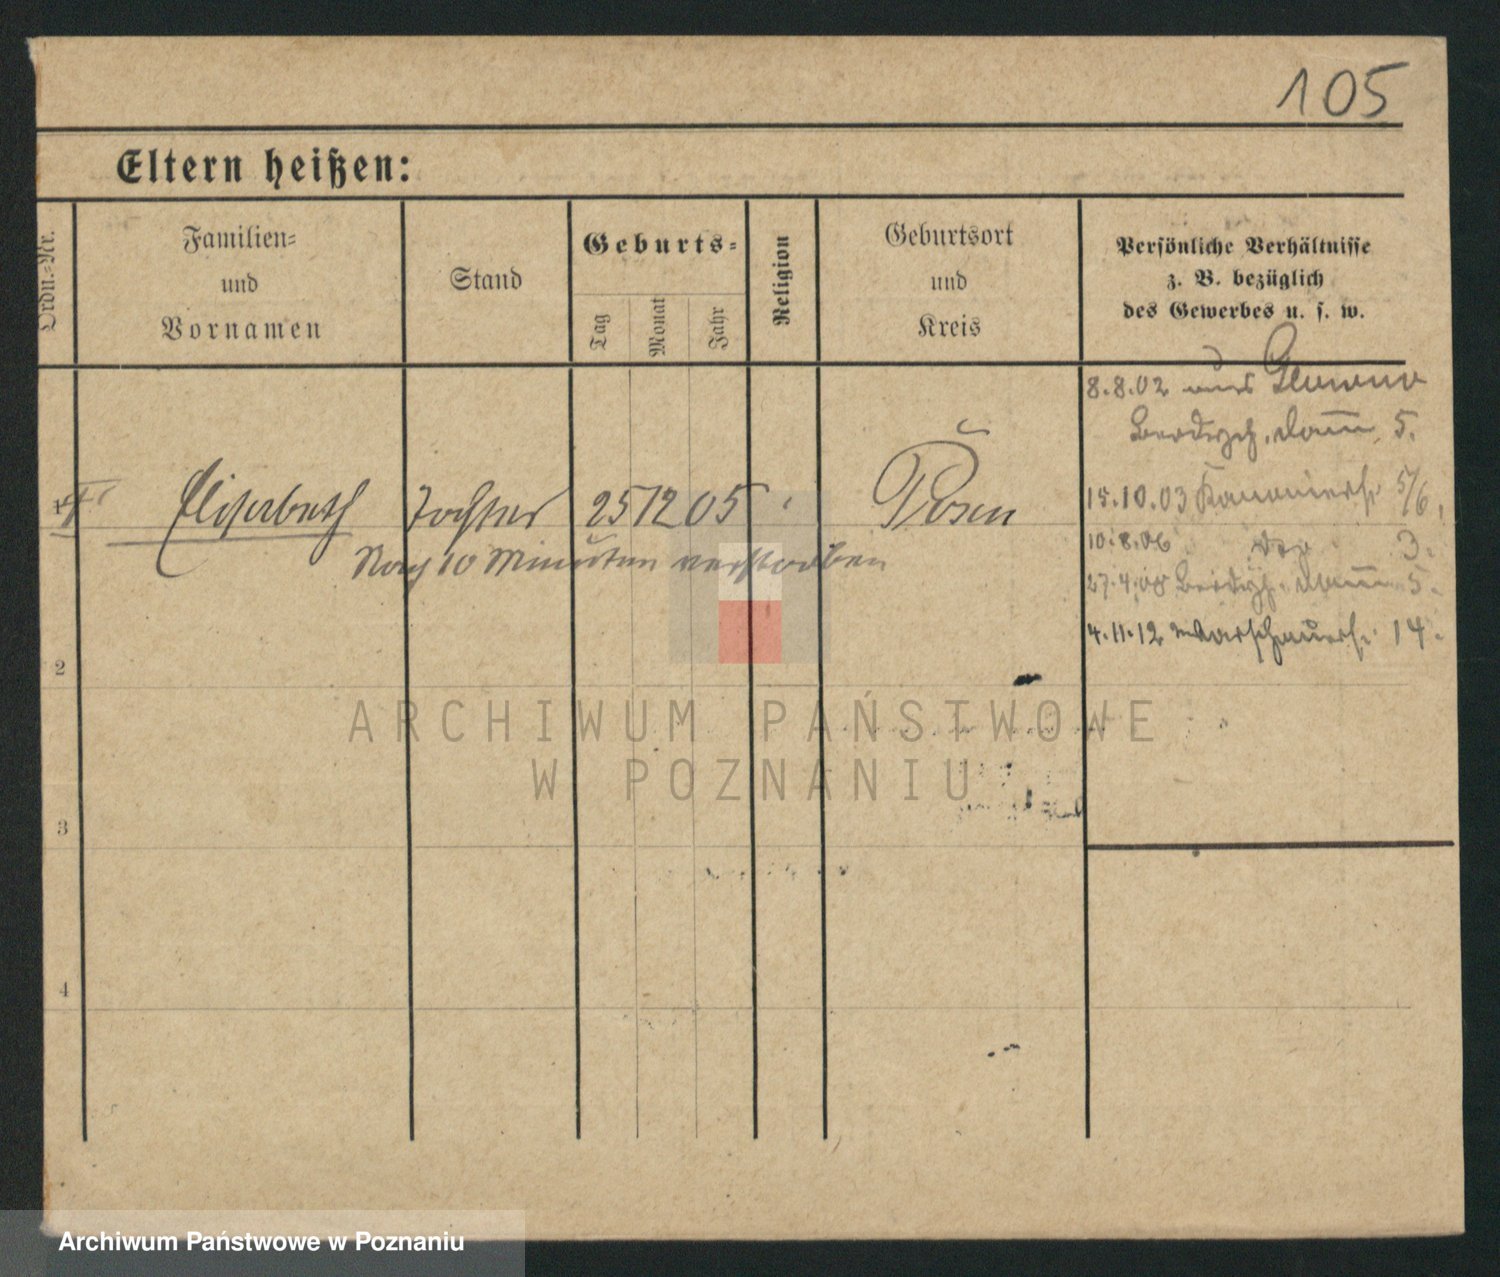 105
Eltern heißen:
Ordn.-Nr.
Familien-
und
Vornamen
Stand
Geburts-
Tag
Monat
Jahr
Religion
Geburtsort
und
Kreis
Persönliche Verhältnisse
z. B. bezüglich
des Gewerbes u. s. w.
8.8.02 aus Glowno
5.
15.10.03 Kanonierst. 5/6.
1 Elisabeth Tochter 25 12 05 Posen
10.8.06 3.
Nach 10 Minuten verstorben
27.4.08 5.
4.11.12 Warschauerst. 14.
2
3
4
ARCHIWUM PAŃSTWOWE
W POZNANIU
Archiwum Państwowe w Poznaniu